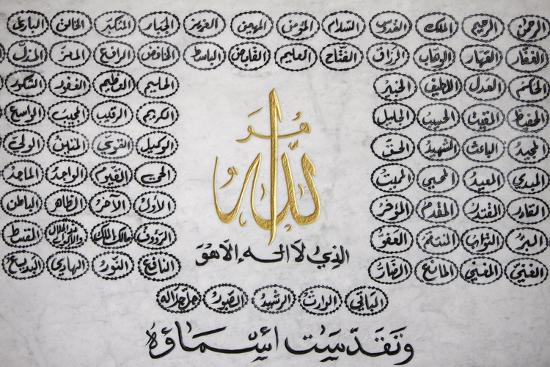 الرحمن الرحيم الملك القدوس السلام المؤمن المهيمن العزيز الجبار المتكبر الخالق البارئ
الغفار القهار الوهاب الرزاق الفتاح العليم القابض الباسط الخافض الرافع المعز المذل
الحكم العدل اللطيف الخبير الحليم العظيم الغفور الشكور
الحفيظ المقيت الحسيب الجليل الكريم الرقيب المجيب الواسع
المجيد الباعث الشهيد الحق الوكيل القوي المتين الولي
المبدي المعيد المحيي المميت الحي القيوم الواحد الماجد
القادر المقتدر المقدم المؤخر الأول الآخر الظاهر الباطن
البر التواب المنتقم العفو الرؤوف مالك الملك ذو الجلال والإكرام المقسط
الغني المغني المانع الضار النافع النور الهادي البديع
هو الله
الذي لا اله الا هو
الباقي الوارث الرشيد الصبور جل جلاله
وتقدست أسماؤه